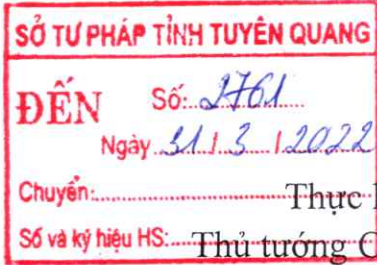 SỞ TƯ PHÁP TỈNH TUYÊN QUANG
ĐẾN Số: 2761
Ngày 31 / 3 / 2022
Chuyển: Thực
Số và ký hiệu HS: Thủ tướng